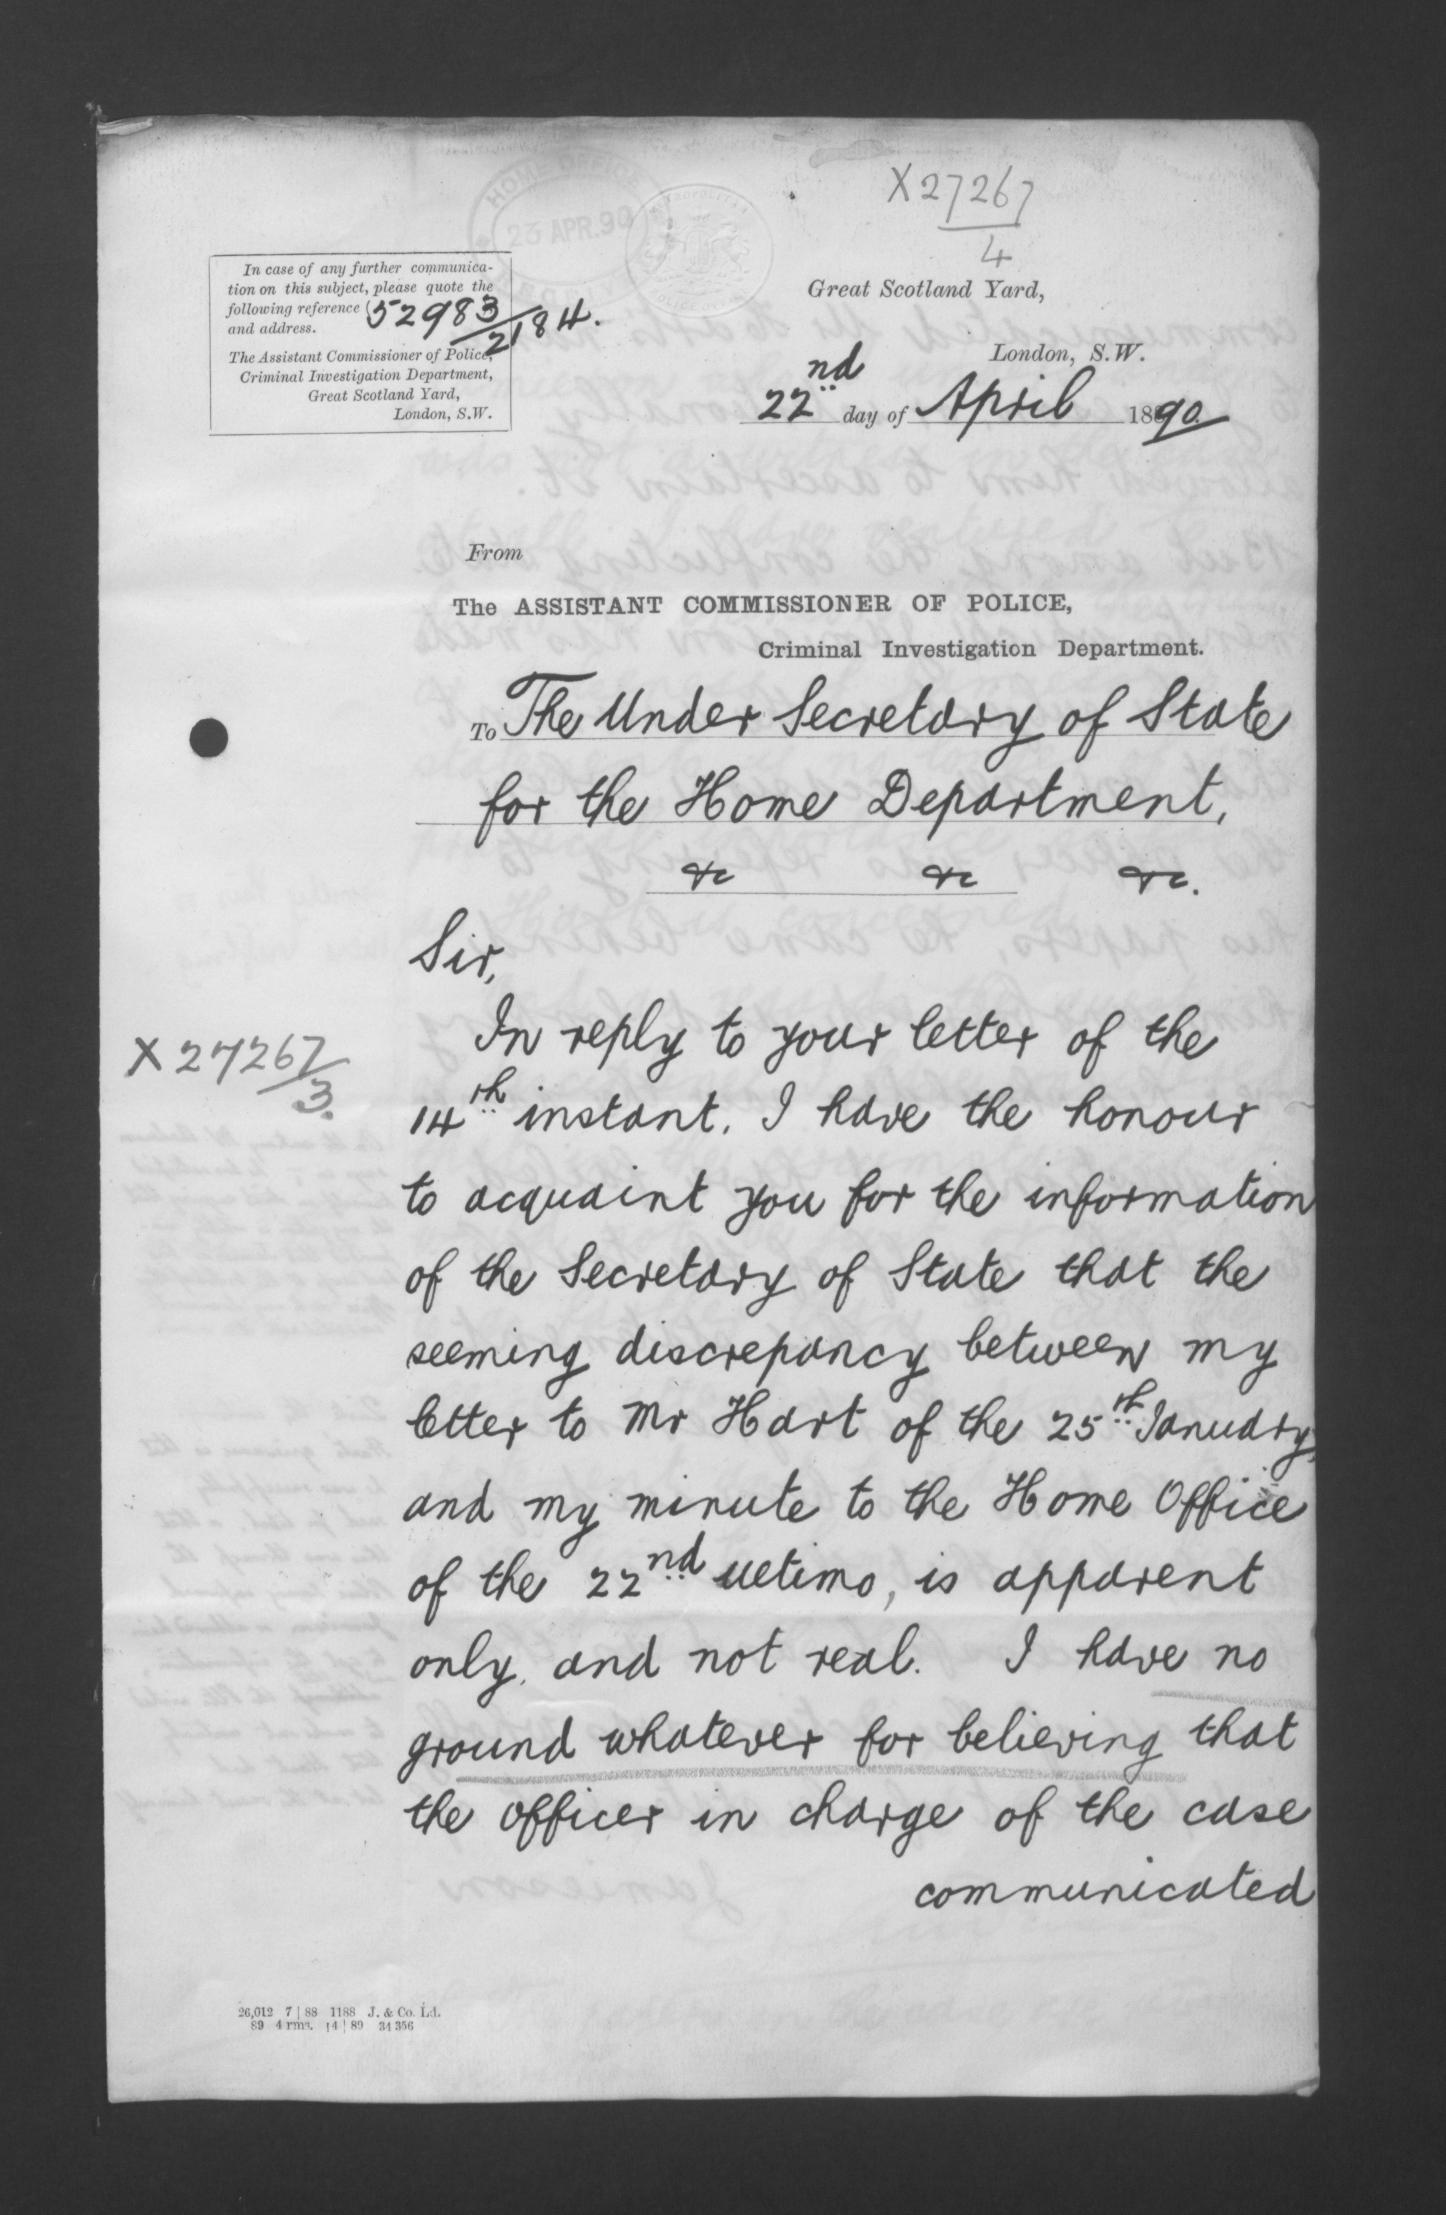 X27267
4
HOME OFFICE
23 APR.90
In case of any further communica-
tion on this subject, please quote the
following reference 52983/2184.
and address.
The Assistant Commissioner of Police,
Criminal Investigation Department,
Great Scotland Yard,
London, S.W.
Great Scotland Yard,
London, S.W.
22nd day of April 1890.
From
The ASSISTANT COMMISSIONER OF POLICE,
Criminal Investigation Department.
To The Under Secretary of State
for the Home Department,
&c &c &c.
Sir,
In reply to your letter of the
X27267/3.
14th instant, I have the honour
to acquaint you for the information
of the Secretary of State that the
seeming discrepancy between my
letter to Mr Hart of the 25th January,
and my minute to the Home Office
of the 22nd ultimo, is apparent
only, and not real. I have no
ground whatever for believing that
the officer in charge of the case
communicated
26,012 7 | 88 1188 J. & Co. Ld.
89 4 rms. 14 | 89 34 356